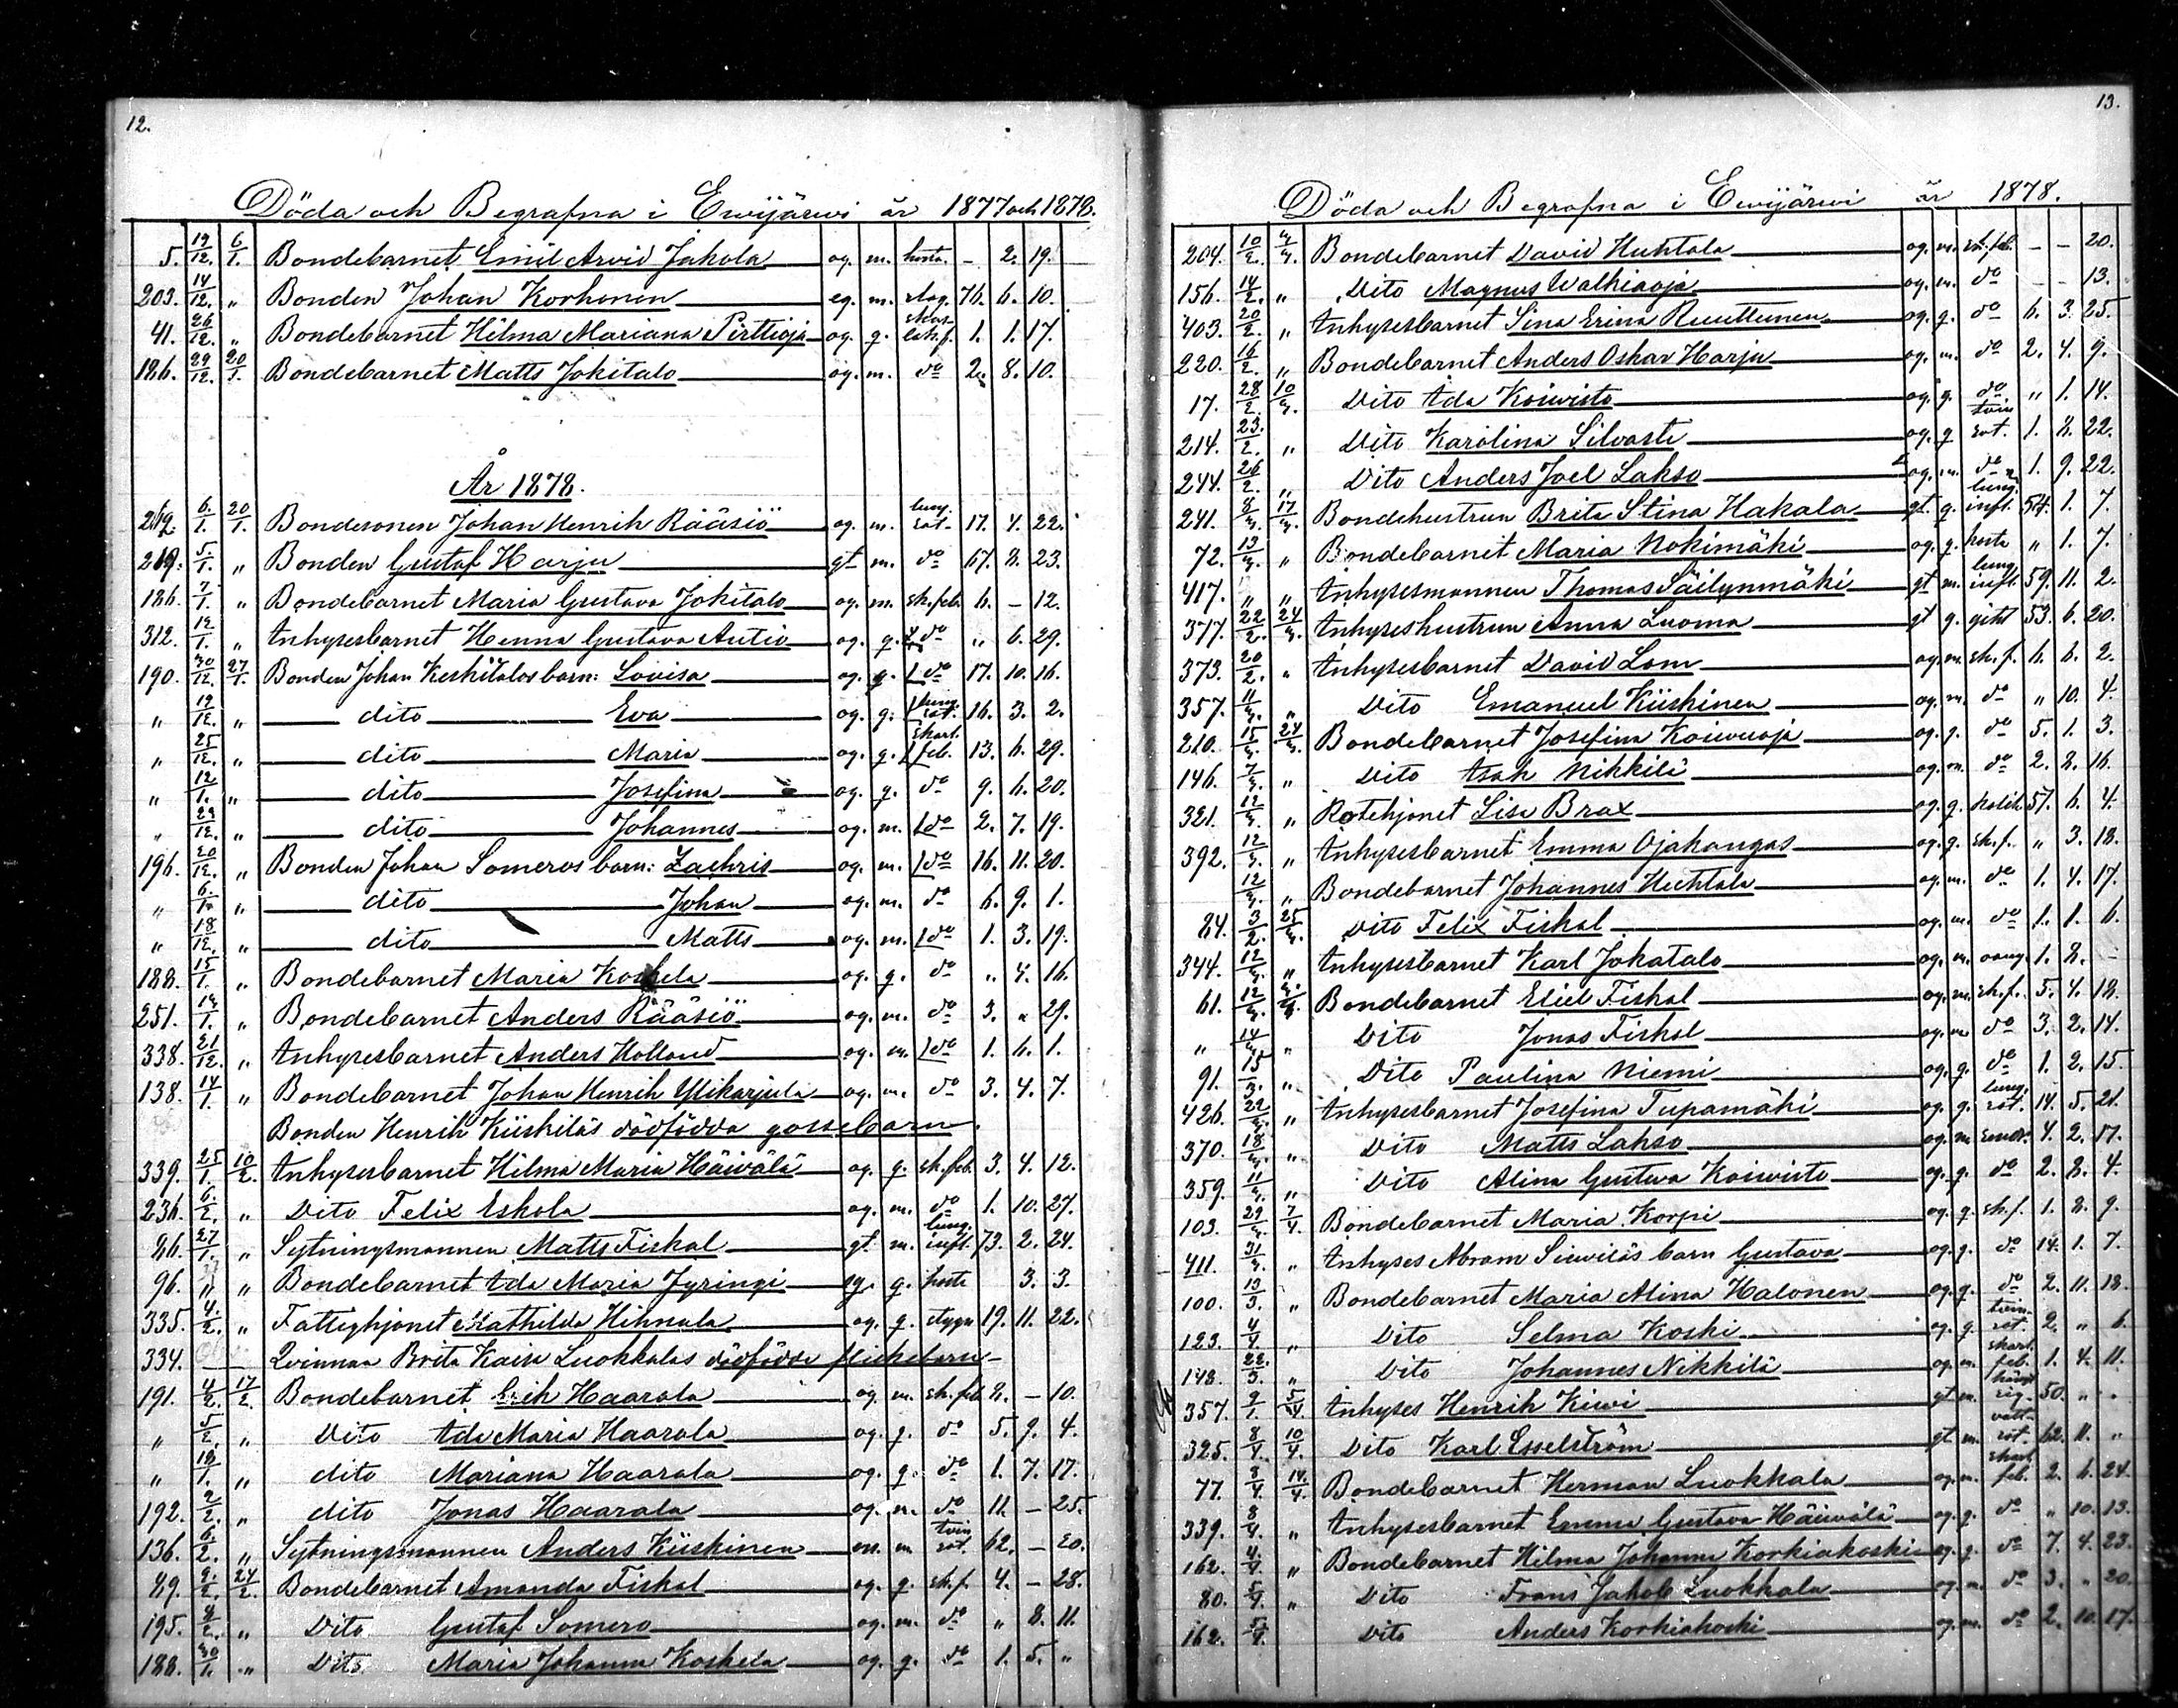 12.
Döda och Begrafna i Ewijärwi år 1877 och 1878.
5. 19/12. 6/1. Bondebarnet Emil Arvid Jakola og. m. hosta. - 2. 19.
203. 14/12. " Bonden Johan Korhonen eg. m. slag. 76. 6. 10.
41. 26/12. " Bondebarnet Hilma Mariana Pirttioja og. g. 1. 1. 17.
186. 29/12. 20/1. Bondebarnet Matts Jokitalo og. m. do 2. 8. 10.
År 1878.
6/1. 20/1. Bondesonen Johan Henrik Rääsiö og. m. lung. sot. 17. 4. 22.
219. 5/1. " Bonden Gustaf Harju gt m. do 67. 8. 23.
186. 7/1. " Bondebarnet Maria Gustava Jokitalo og. m. sk. feb. 6. - 12.
312. 12/1. " Inhysesbarnet Henna Gustava Autio og. g. do " 6. 29.
190. 30/12. 27/1. Bonden Johan Keskitalos barn: Lovisa og. g. do 17. 10. 16.
" 19/12. " dito Eva og. g. lung. sot. 16. 3. 2.
" 25/12. " dito Maria og. g. skarl. feb. 13. 6. 29.
" 12/1. " dito Josefina og. g. do 9. 6. 20.
" 29/12. " dito Johannes og. m. do 2. 7. 19.
196. 20/12. " Bonden Johan Someros barn: Zachris og. m. do 16. 11. 20.
" 6/1. " dito Johan og. m. do 6. 9. 1.
" 18/12. " dito Matts og. m. do 1. 3. 19.
188. 15/1. " Bondebarnet Maria Koskela og. g. do " 4. 16.
251. 19/1. " Bondebarnet Anders Rääsiö og. m. do 3. " 29.
338. 21/12. " Inhysesbarnet Anders Holland og. m. do 1. 6. 1.
138. 14/1. " Bondebarnet Johan Henrik Ylikarjula og. m. do 3. 4. 7.
Bonden Henrik Kiiskiläs dödfödda gossebarn.
339. 25/1. 10/2. Inhysesbarnet Hilma Maria Häivälä og. g. sk. feb. 3. 4. 12.
236. 6/2. " Dito Felix Eskola og. m. do 1. 10. 27.
86. 27/1. " Sytningsmannen Matts Fiskal gt. m. lung. infl. 73. 2. 24.
96. " " Bondebarnet Ida Maria Jyringi og. g. hosta 3. 3.
335. 4/2. " Fattighjonet Mathilda Hihnala og. g. 19. 11. 22.
334. Qvinnan Brita Kaisa Luokkalas dödfödda flickebarn
191. 4/2. 17/2. Bondebarnet Erik Haarala og. m. sk. feb 8. - 10.
" 5/2. " Dito Ida Maria Haarala og. g. do 5. 9. 4.
" 19/1. " dito Mariana Haarala og. g. do 1. 7. 17.
192. 2/2. " dito Jonas Haarala og. m. do 11. - 25.
136. 6/2. " Sytningsmannen Anders Kiiskinen en. m. tvin sot. 62. - 20.
89. 9/2. 24/2. Bondebarnet Amanda Fiskal og. g. sk. f. 4. - 28.
195. 9/2. " Dito Gustaf Somero og. m. do " 8. 11.
188. 30/1. " Dito Maria Johanna Koskela og. g. do 1. 5. "
13.
Döda och Begrafna i Ewijärwi år 1878.
204. 10/2. 3/3. Bondebarnet David Huhtala og. m. sk. feb. - - 20.
156. 14/2. " Dito Magnus Walkiaoja og. m. do - - 13.
403. 20/2. " Inhysesbarnet Sina Erina Ruuttunen og. g. do 6. 3. 25.
220. 16/2. " Bondebarnet Anders Oskar Harju og. m. do 2. 4. 9.
17. 28/2. 10/3. Dito Ida Koiwisto og. g. do " 1. 14.
214. 23/2. " Dito Karolina Silvasti og. g tvin sot. 1. 8. 22.
244. 26/2. " Dito Anders Joel Lakso og. m. do 1. 9. 22.
241. 8/3. 17/3. Bondehustrun Brita Stina Hakala gt. g. lung. infl. 54. 1. 7.
72. 13/3. " Bondebarnet Maria Nokimäki og. g. hosta " 1. 7.
417. " " Inhysesmannen Thomas Säilynmäki gt m. lung. infl. 59. 11. 2.
377. 22/2. 24/3. Inhyseshustrun Anna Luoma gt g. gikt 53. 6. 20.
373. 20/2. " Inhysesbarnet David Lom og. m. sk. f. 6. 6. 2.
357. 11/3. " Dito Emanuel Kiiskinen og. m. do " 10. 4.
210. 15/3. 24/3. Bondebarnet Josefina Koiwuoja og. g. do 5. 1. 3.
146. 7/3. " Dito Isak Nikkilä og. m. do 2. 8. 16.
321. 12/3. " Rotehjonet Lisa Brax og. g. kolik 57. 6. 4.
392. 12/3. " Inhysesbarnet Emma Ojakangas og. g. sk. f. " 3. 18.
12/3. " Bondebarnet Johannes Huhtala og. m. do 1. 4. 17.
84. 3/2. 25/3. Dito Felix Fiskal og. m. do 1. 1. 6.
344. 12/3. " Inhysesbarnet Karl Jokatalo og. m. 1. 8. -
61. 12/3. Bondebarnet Eliel Fiskal og. m. sk. f. 5. 4. 18.
" 14/3. " Dito Jonas Fiskal og. m do 3. 2. 14.
91. 15/3. " Dito Paulina Niemi og. g. do 1. 2. 15.
426. 22/3. " Inhysesbarnet Josefina Tupamäki og. g. lung. sot. 14. 5. 21.
370. 18/3. " Dito Matts Lakso og. m 4. 2. 17.
359. 11/3. " Dito Alina Gustava Koiwisto og. g. do 2. 8. 4.
103. 29/3. 7/4. Bondebarnet Maria Korpi og. g. sk. f. 1. 8. 9.
411. 31/3. " Inhyses Abram Siiwiläs barn Gustava og. g. do 14. 1. 7.
100. 13/3. " Bondebarnet Maria Alina Halonen og. g. do 2. 11. 18.
123. 4/4. " Dito Selma Koski og. g. tvin sot. 2. " 6.
148. 22/3. " Dito Johannes Nikkilä og. m. skarl. feb. 1. 4. 11.
357. 9/1. 5/4. Inhyses Henrik Kiwi gt. m. 50. " "
325. 8/4. 10/4. Dito Karl Esselström gt m. vatt. sot. 62. 11. "
77. 8/4. 14/4. Bondebarnet Herman Luokkala og. m. skarl. feb. 2. 6. 24.
339. 8/4. " Inhysesbarnet Emma Gustava Häiwälä og. g. do " 10. 13.
162. 4/4. " Bondebarnet Hilma Johanna Korkiakoski og. g. do 7. 4. 23.
80. 5/4. " Dito Frans Jakob Luokkala og. m. do 3. " 20.
162. 5/4. Dito Anders Korkiakoski og. m. do 2. 10. 17.